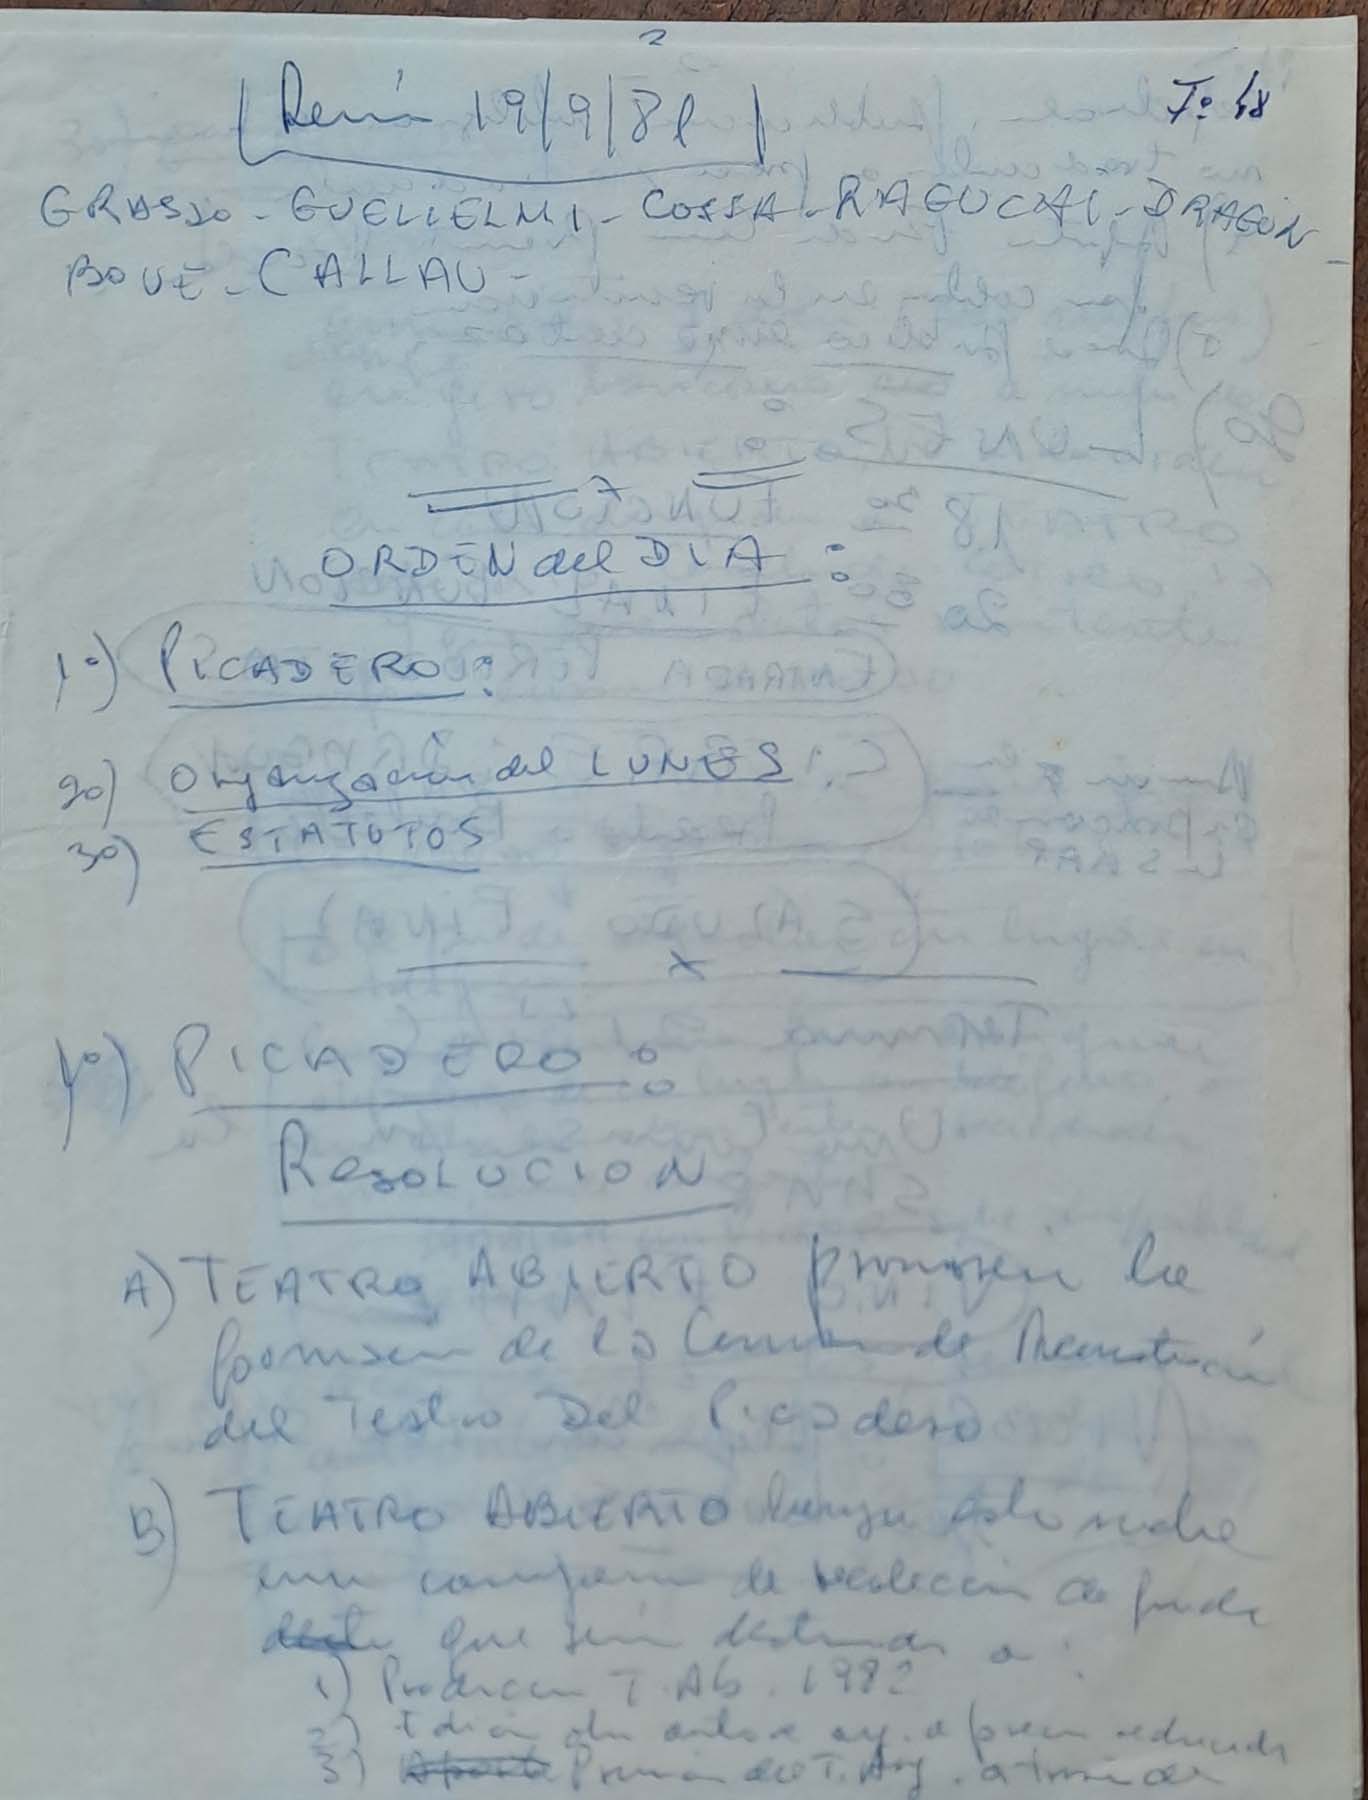 2
Reunión 19/9/81
Fo 48
GRASSO - GUGLIELMI - COSSA - RAGUCCI - DRAGÚN -
BOVE - CALLAU -
ORDEN del DIA:
1º) PICADERO:
2º) Organización del LUNES.
3º) ESTATUTOS
X
1º) PICADERO:
RESOLUCION
A) TEATRO ABIERTO promueve la
formación de la Comisión de Reconstrucción
del Teatro Del Picadero
B) TEATRO ABIERTO lanza esta noche
una campaña de recolección de fondos
que serán destinados a:
1) Producción T. Ab. 1982
2) Edición de autores arg. a precio reducido
3) Promoción del T. Arg. a través de